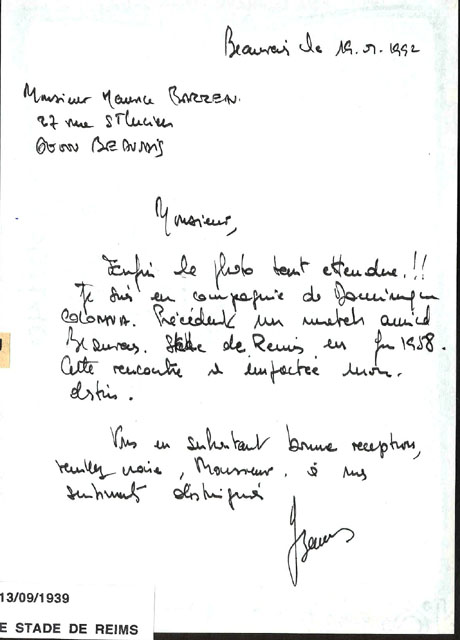 Beauvais le 19.01.1992
Monsieur Maurice
27 rue St Lucien
60000 BEAUVAIS
Monsieur,
Enfin la photo tant attendue.!!
Je suis en compagnie de Dominique
COLONNA. Précédent un match amical
Beauvais. Stade de Reims en 1958.
Cette rencontre a mon.
Vous en souhaitant bonne reception,
veuillez croire, Monsieur. à mes
sentiments distingués
13/09/1939
E STADE DE REIMS